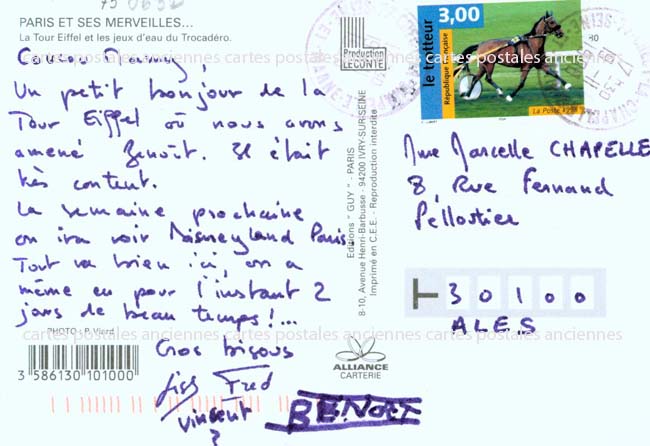 PARIS ET SES MERVEILLES...
La Tour Eiffel et les jeux d'eau du Trocadéro.
Un petit bonjour de la
Tour Eiffel où nous avons
amené Benoît. Il était
très content.
La semaine prochaine
on ira voir Disneyland Paris.
Tout va bien ici, on a
même eu pour l'instant 2
jours de beau temps !...
Gros bisous
Fred
Vincent
?
BENOIT
PHOTO : P. Viard
3 586130 101000
Production
LECONTE
Editions " GUY " - PARIS
8-10, Avenue Henri-Barbusse - 94200 IVRY-SUR-SEINE
Imprimé en C.E.E. - Reproduction interdite
ALLIANCE
CARTERIE
3,00
le trotteur
République Française
La Poste 1998
Mme Marcelle CHAPELLE
8, Rue Fernand
Pelloutier
30100
ALES
cartes postales anciennes cartes postales anciennes cartes postales anciennes
cartes postales anciennes cartes postales anciennes cartes postales anciennes